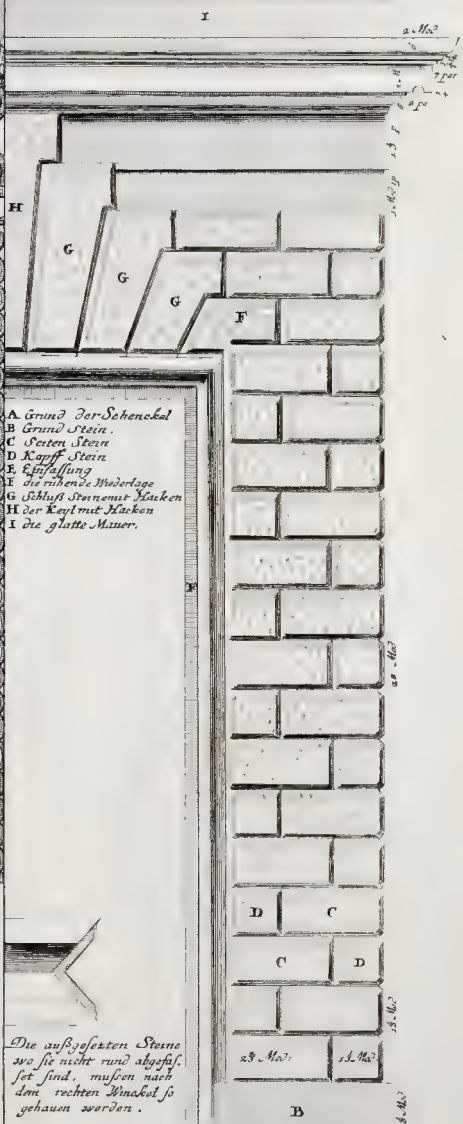 I
2 Mod
7 par
8 pa
H
G
G
G
F
A Grund der Schenckel
B Grund Stein.
C Seiten Stein
D Kopff Stein
E Einfassung
F die ruhende Wiederlage
G Schluß Steine mit Hacken
H der Keyl mit Hacken
I die glatte Mauer.
20 Mod
D C
C D
Die außgesetzten Steine
wo sie nicht rund abgefas.
set sind, mussen nach
dem rechten Winckel so
gehauen werden.
B